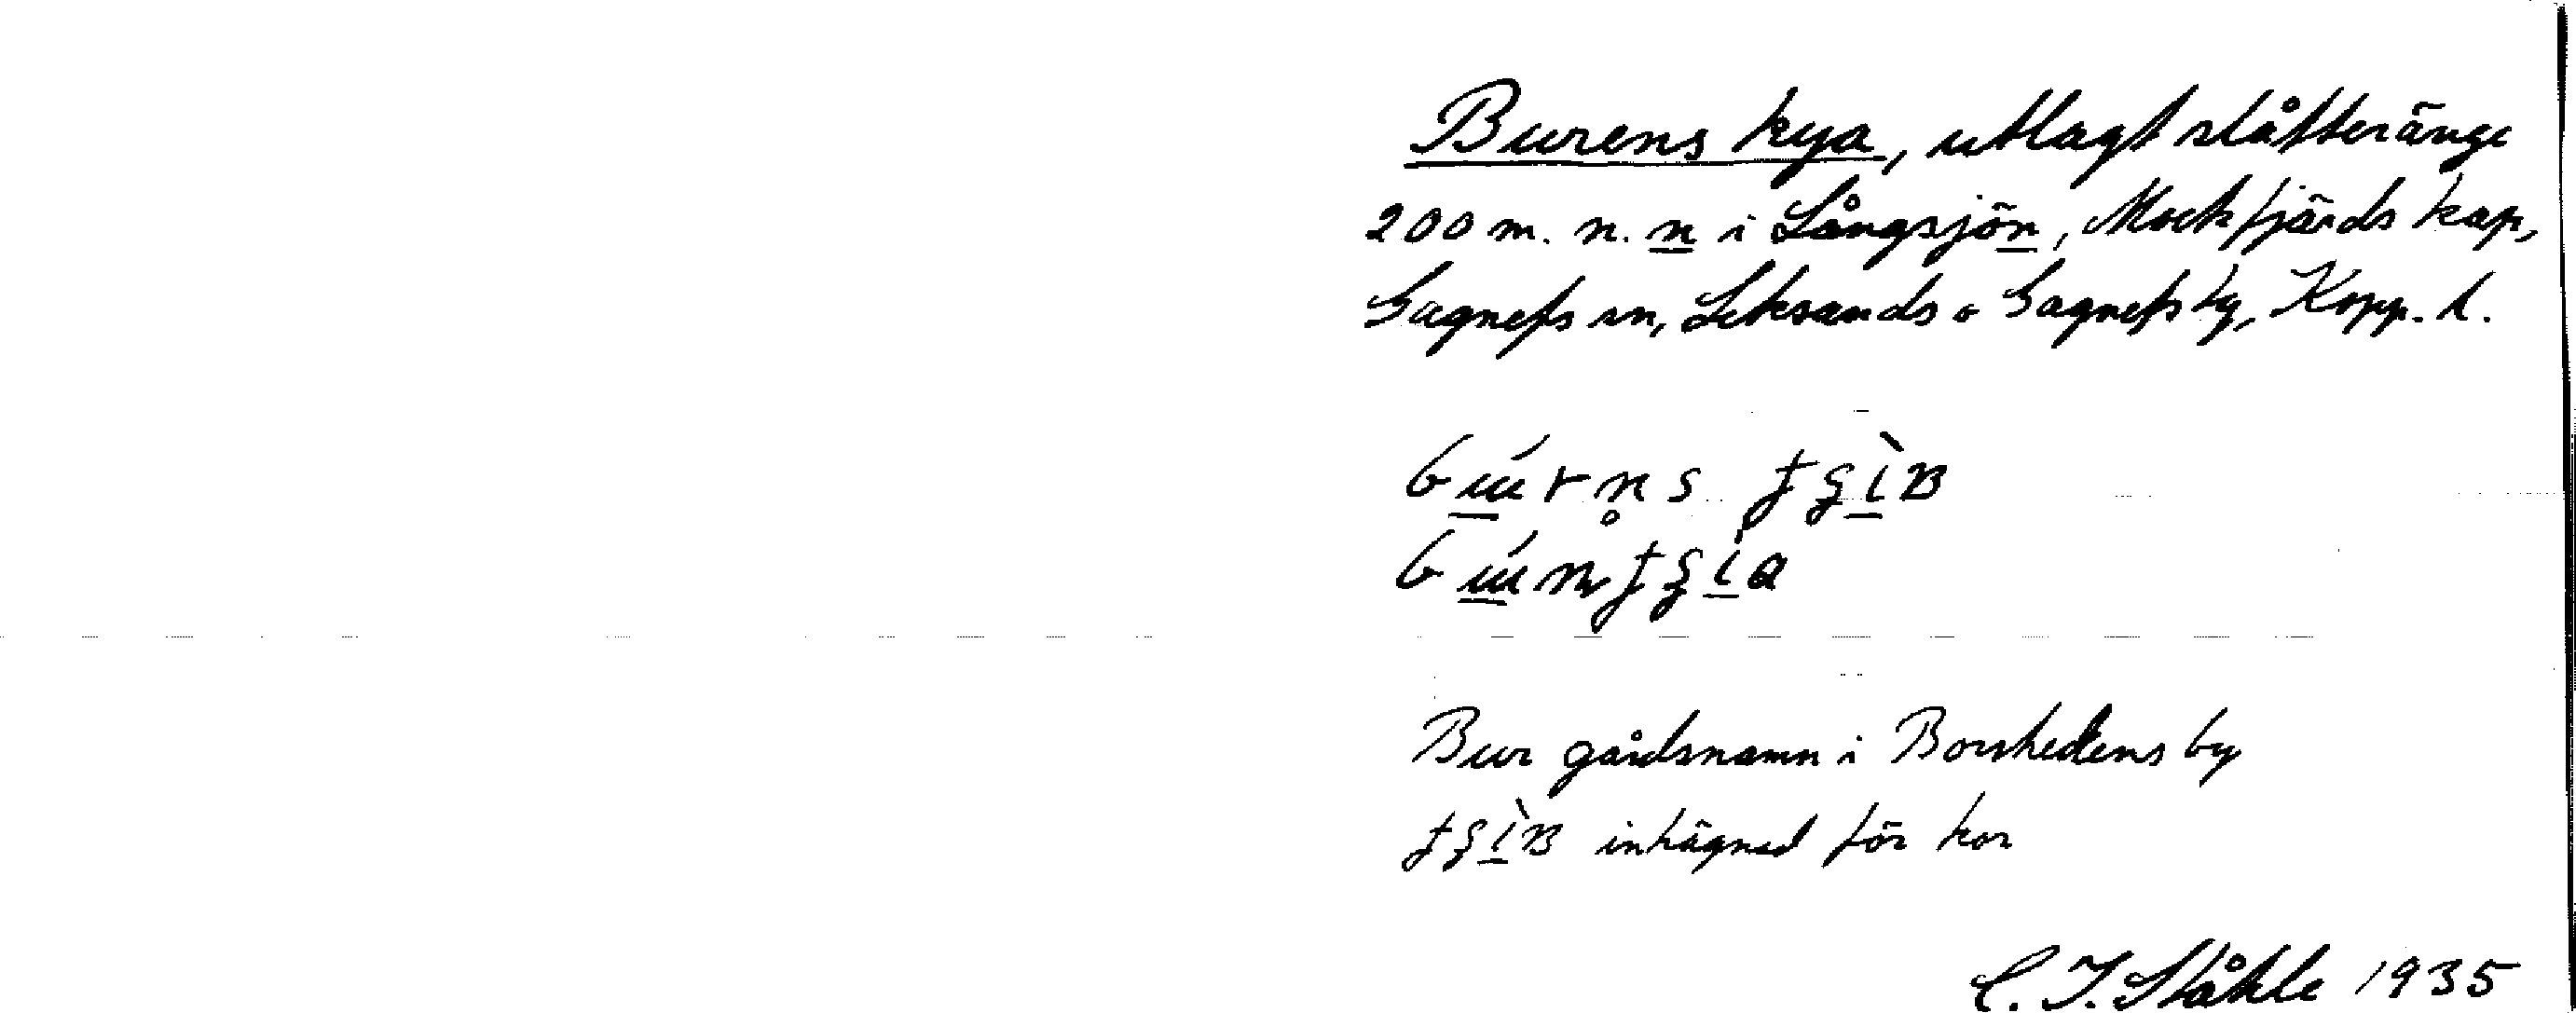 Burens kya, utlagt slåtteränge
200 m. n. n i Långsjön, Mockfjärds kap,
Gagnefs sn, Leksands o Gagnefs tg, Kopp. l.
Bur gårdsnamn i Borshedens by
inhägnad för kor
C. I. Ståhle 1935